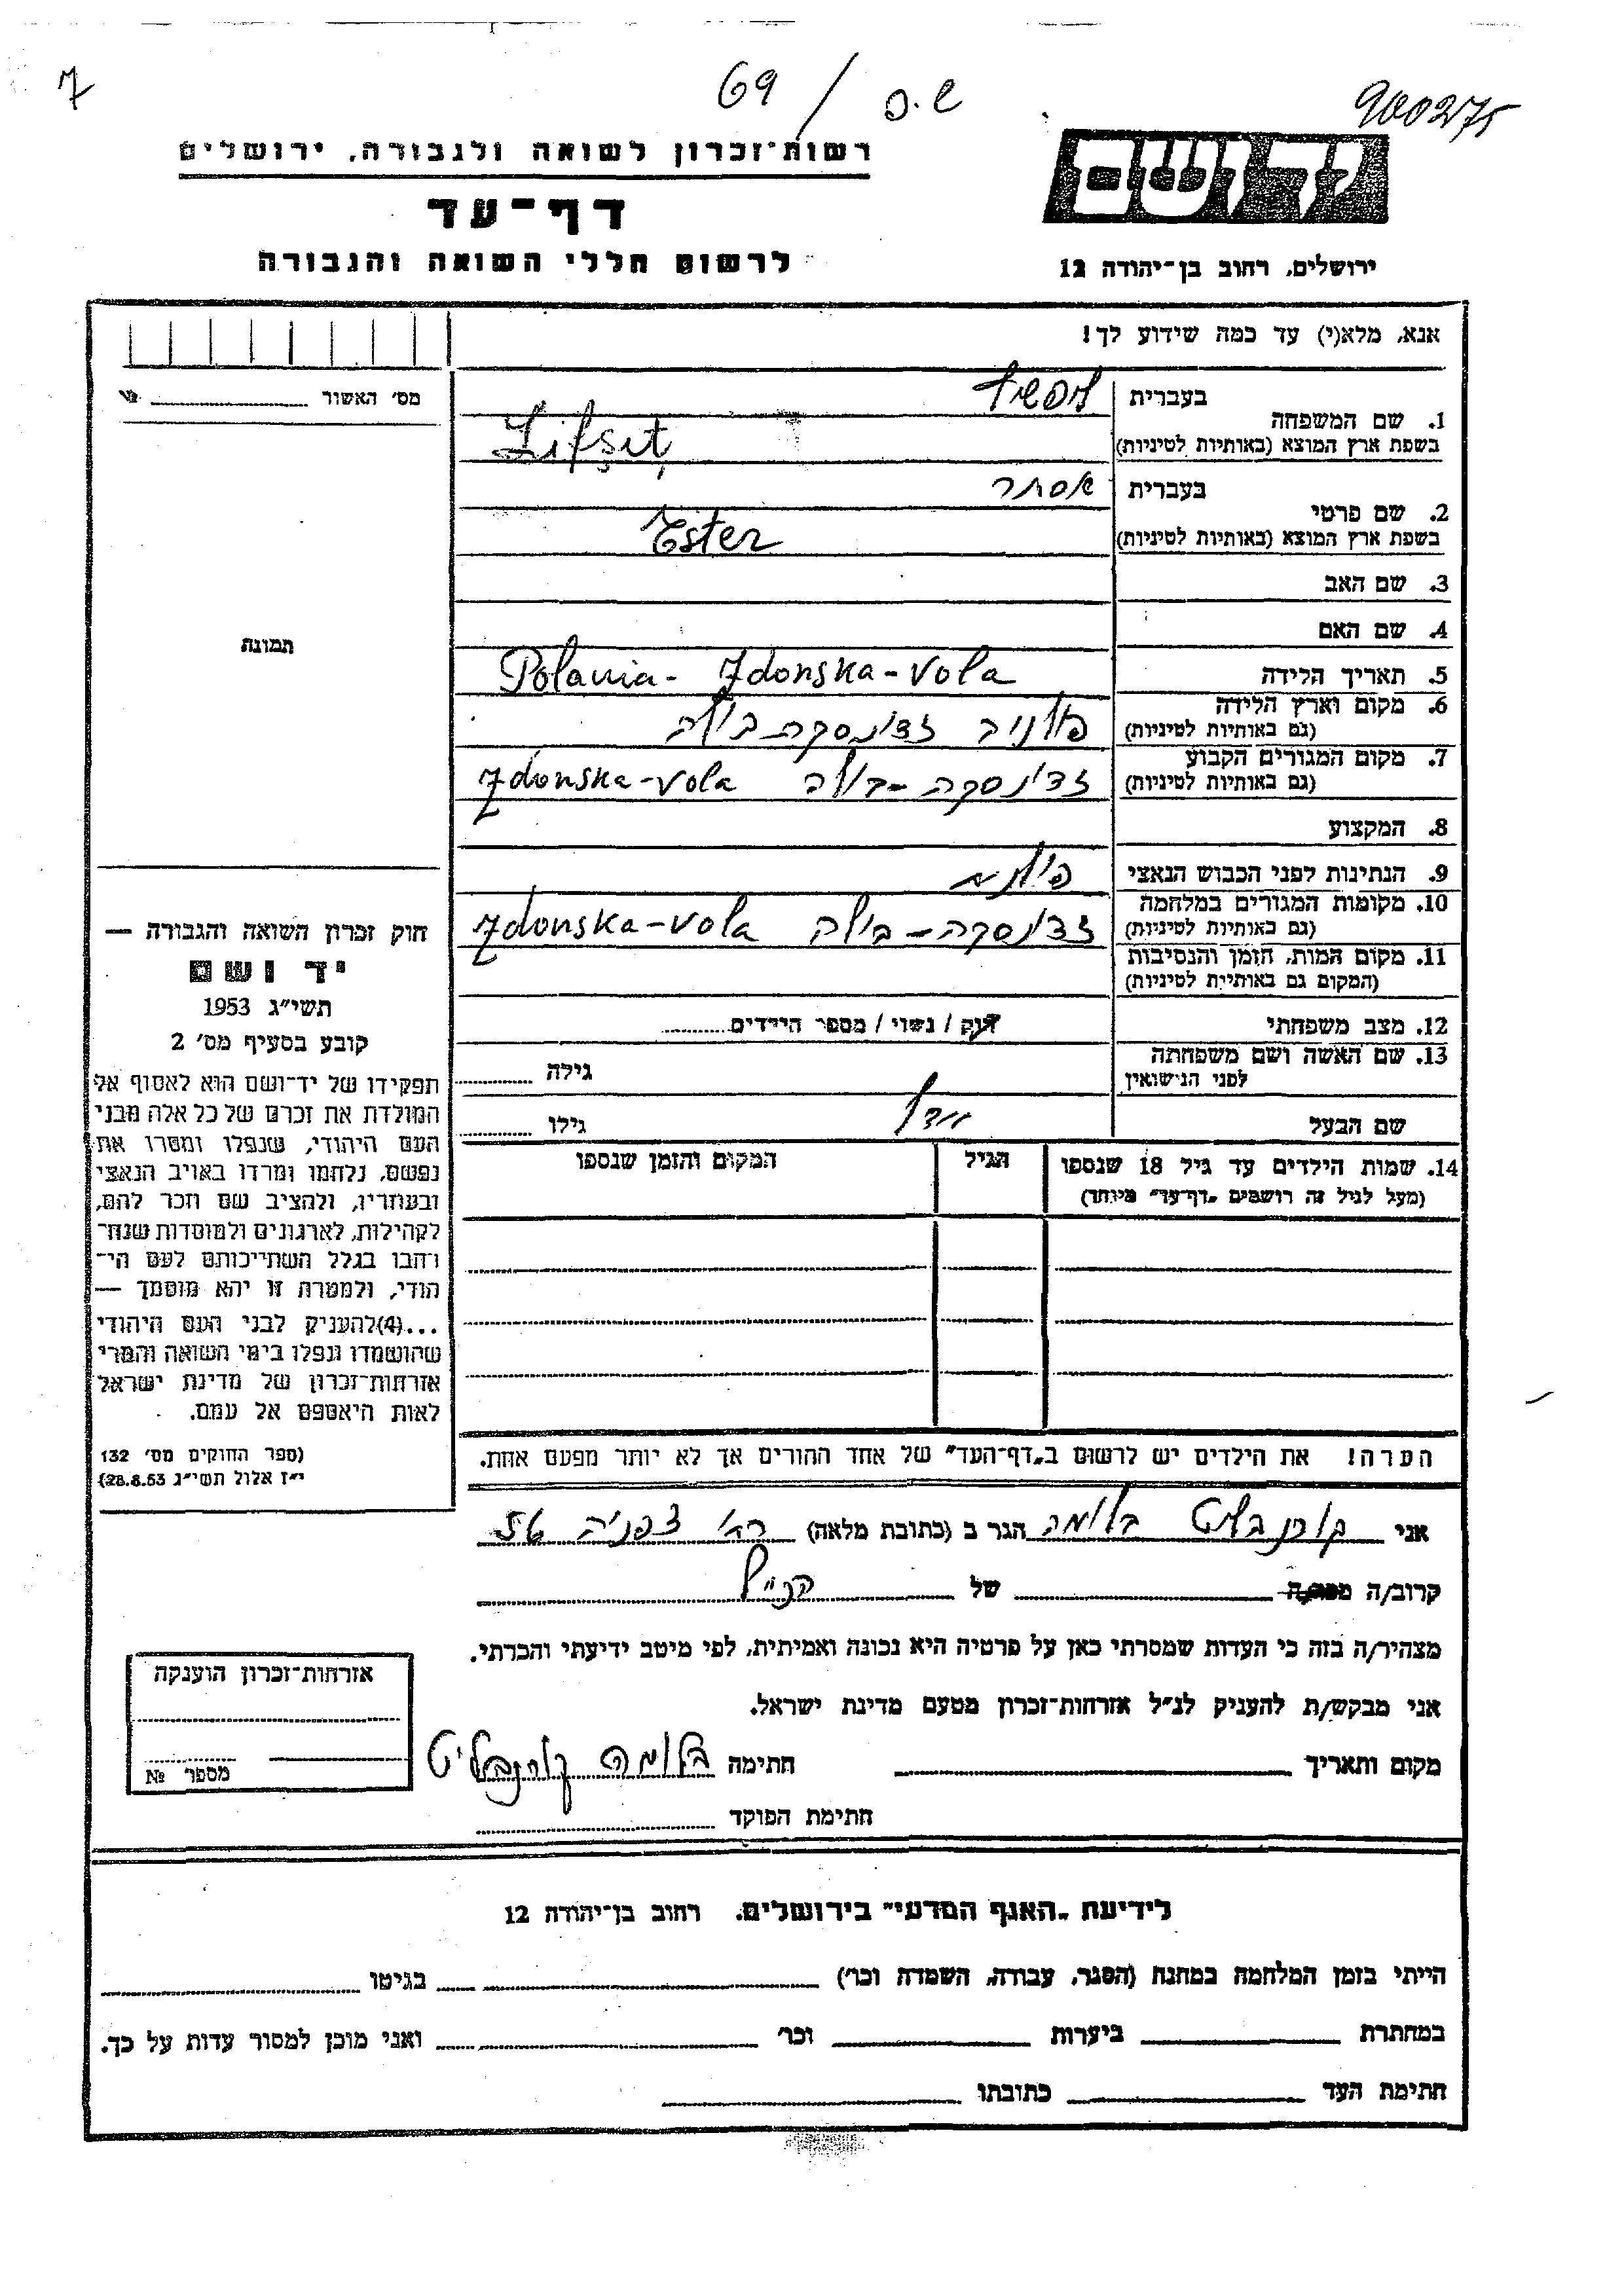 69 / ש.פ
900275
רשות־זכרון לשואה ולגבורה, ירושלים
דף־עד
לרשום חללי השואה והגבורה
יד ושם
ירושלים, רחוב בן־יהודה 12
אנא, מלא(י) עד כמה שידוע לך!
מס׳ האשור
תמונה
1. שם המשפחה
בעברית ליפשיץ
בשפת ארץ המוצא (באותיות לטיניות) Lifşiţ
2. שם פרטי
בעברית אסתר
בשפת ארץ המוצא (באותיות לטיניות) Ester
3. שם האב
4. שם האם
5. תאריך הלידה
Polania - Zdonska-Vola
6. מקום וארץ הלידה
(גם באותיות לטיניות) פולניה זדונסקה-בולה
7. מקום המגורים הקבוע
(גם באותיות לטיניות) זדונסקה-בולה Zdonska-Vola
8. המקצוע
9. הנתינות לפני הכבוש הנאצי
10. מקומות המגורים במלחמה
(גם באותיות לטיניות) זדונסקה-בולה Zdonska-Vola
11. מקום המות, הזמן והנסיבות
(המקום גם באותיות לטיניות)
12. מצב משפחתי רווק / נשוי / מספר הילדים
13. שם האשה ושם משפחתה
לפני הנישואין גילה
שם הבעל גילו
14. שמות הילדים עד גיל 18 שנספו הגיל המקום והזמן שנספו
(מעל לגיל זה רושמים „דף־עד״ מיוחד)
הערה! את הילדים יש לרשום ב„דף־העד״ של אחד ההורים אך לא יותר מפעם אחת.
חוק זכרון השואה והגבורה —
יד ושם
תשי״ג 1953
קובע בסעיף מס׳ 2
תפקידו של יד־ושם הוא לאסוף אל
המולדת את זכרם של כל אלה מבני
העם היהודי, שנפלו ומסרו את
נפשם, נלחמו ומרדו באויב הנאצי
ובעוזריו, ולהציב שם וזכר להם,
לקהילות, לארגונים ולמוסדות שנח־
רהבו בגלל השתייכותם לעם הי־
הודי, ולמטרת זו יהא מוסמך —
...(4)להעניק לבני העם היהודי
שהושמדו ונפלו בימי השואה והמרי
אזרחות־זכרון של מדינת ישראל
לאות היאספם אל עמם.
(ספר החוקים מס׳ 132
י״ז אלול תשי״ג 28.8.53)
אני קורנבליט בלומה הגר ב (כתובת מלאה) רח׳ צפניה 56
קרוב/ה של הנ״ל
מצהיר/ה בזה כי העדות שמסרתי כאן על פרטיה היא נכונה ואמיתית, לפי מיטב ידיעתי והכרתי.
אני מבקש/ת להעניק לנ״ל אזרחות־זכרון מטעם מדינת ישראל.
מקום ותאריך חתימה בלומה קורנבליט
חתימת הפוקד
אזרחות־זכרון הוענקה
מספר №
לידיעת „האגף המדעי״ בירושלים, רחוב בן־יהודה 12
הייתי בזמן המלחמה במחנה (הסגר, עבודה, השמדה וכו׳) בגיטו
במחתרת ביערות וכו׳ ואני מוכן למסור עדות על כך.
חתימת העד כתובתו